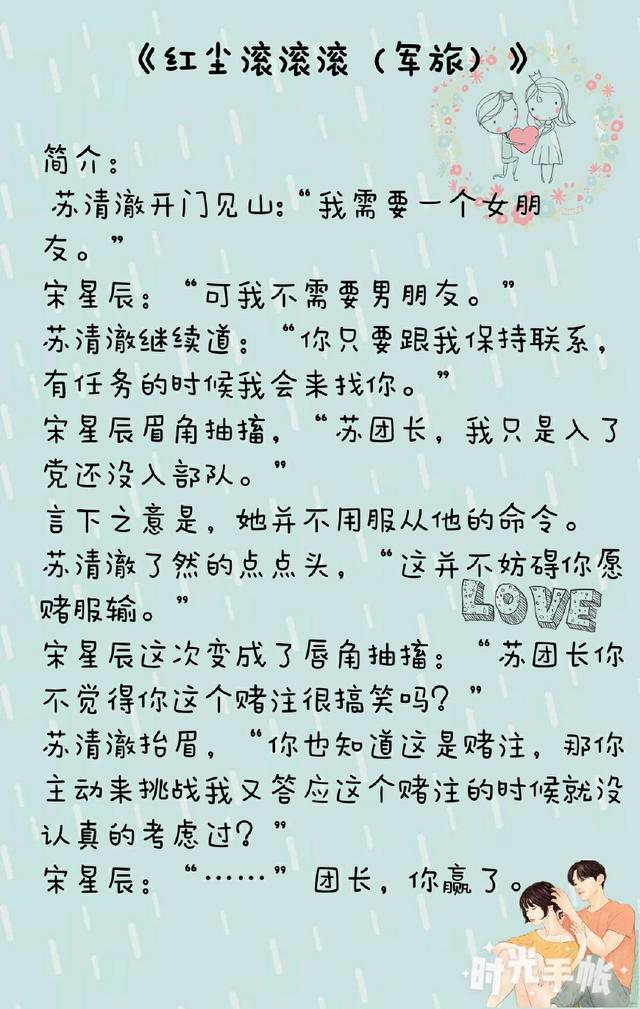 《红尘滚滚滚（军旅）》
简介：
苏清澈开门见山:“我需要一个女朋
友。”
宋星辰：“可我不需要男朋友。”
苏清澈继续道：“你只要跟我保持联系，
有任务的时候我会来找你。”
宋星辰眉角抽搐，“苏团长，我只是入了
党还没入部队。”
言下之意是，她并不用服从他的命令。
苏清澈了然的点点头，“这并不妨碍你愿
赌服输。”
LOVE
宋星辰这次变成了唇角抽搐：“苏团长你
不觉得你这个赌注很搞笑吗？”
苏清澈抬眉，“你也知道这是赌注，那你
主动来挑战我又答应这个赌注的时候就没
认真的考虑过？”
宋星辰：“……” 团长，你赢了。
时光手帐